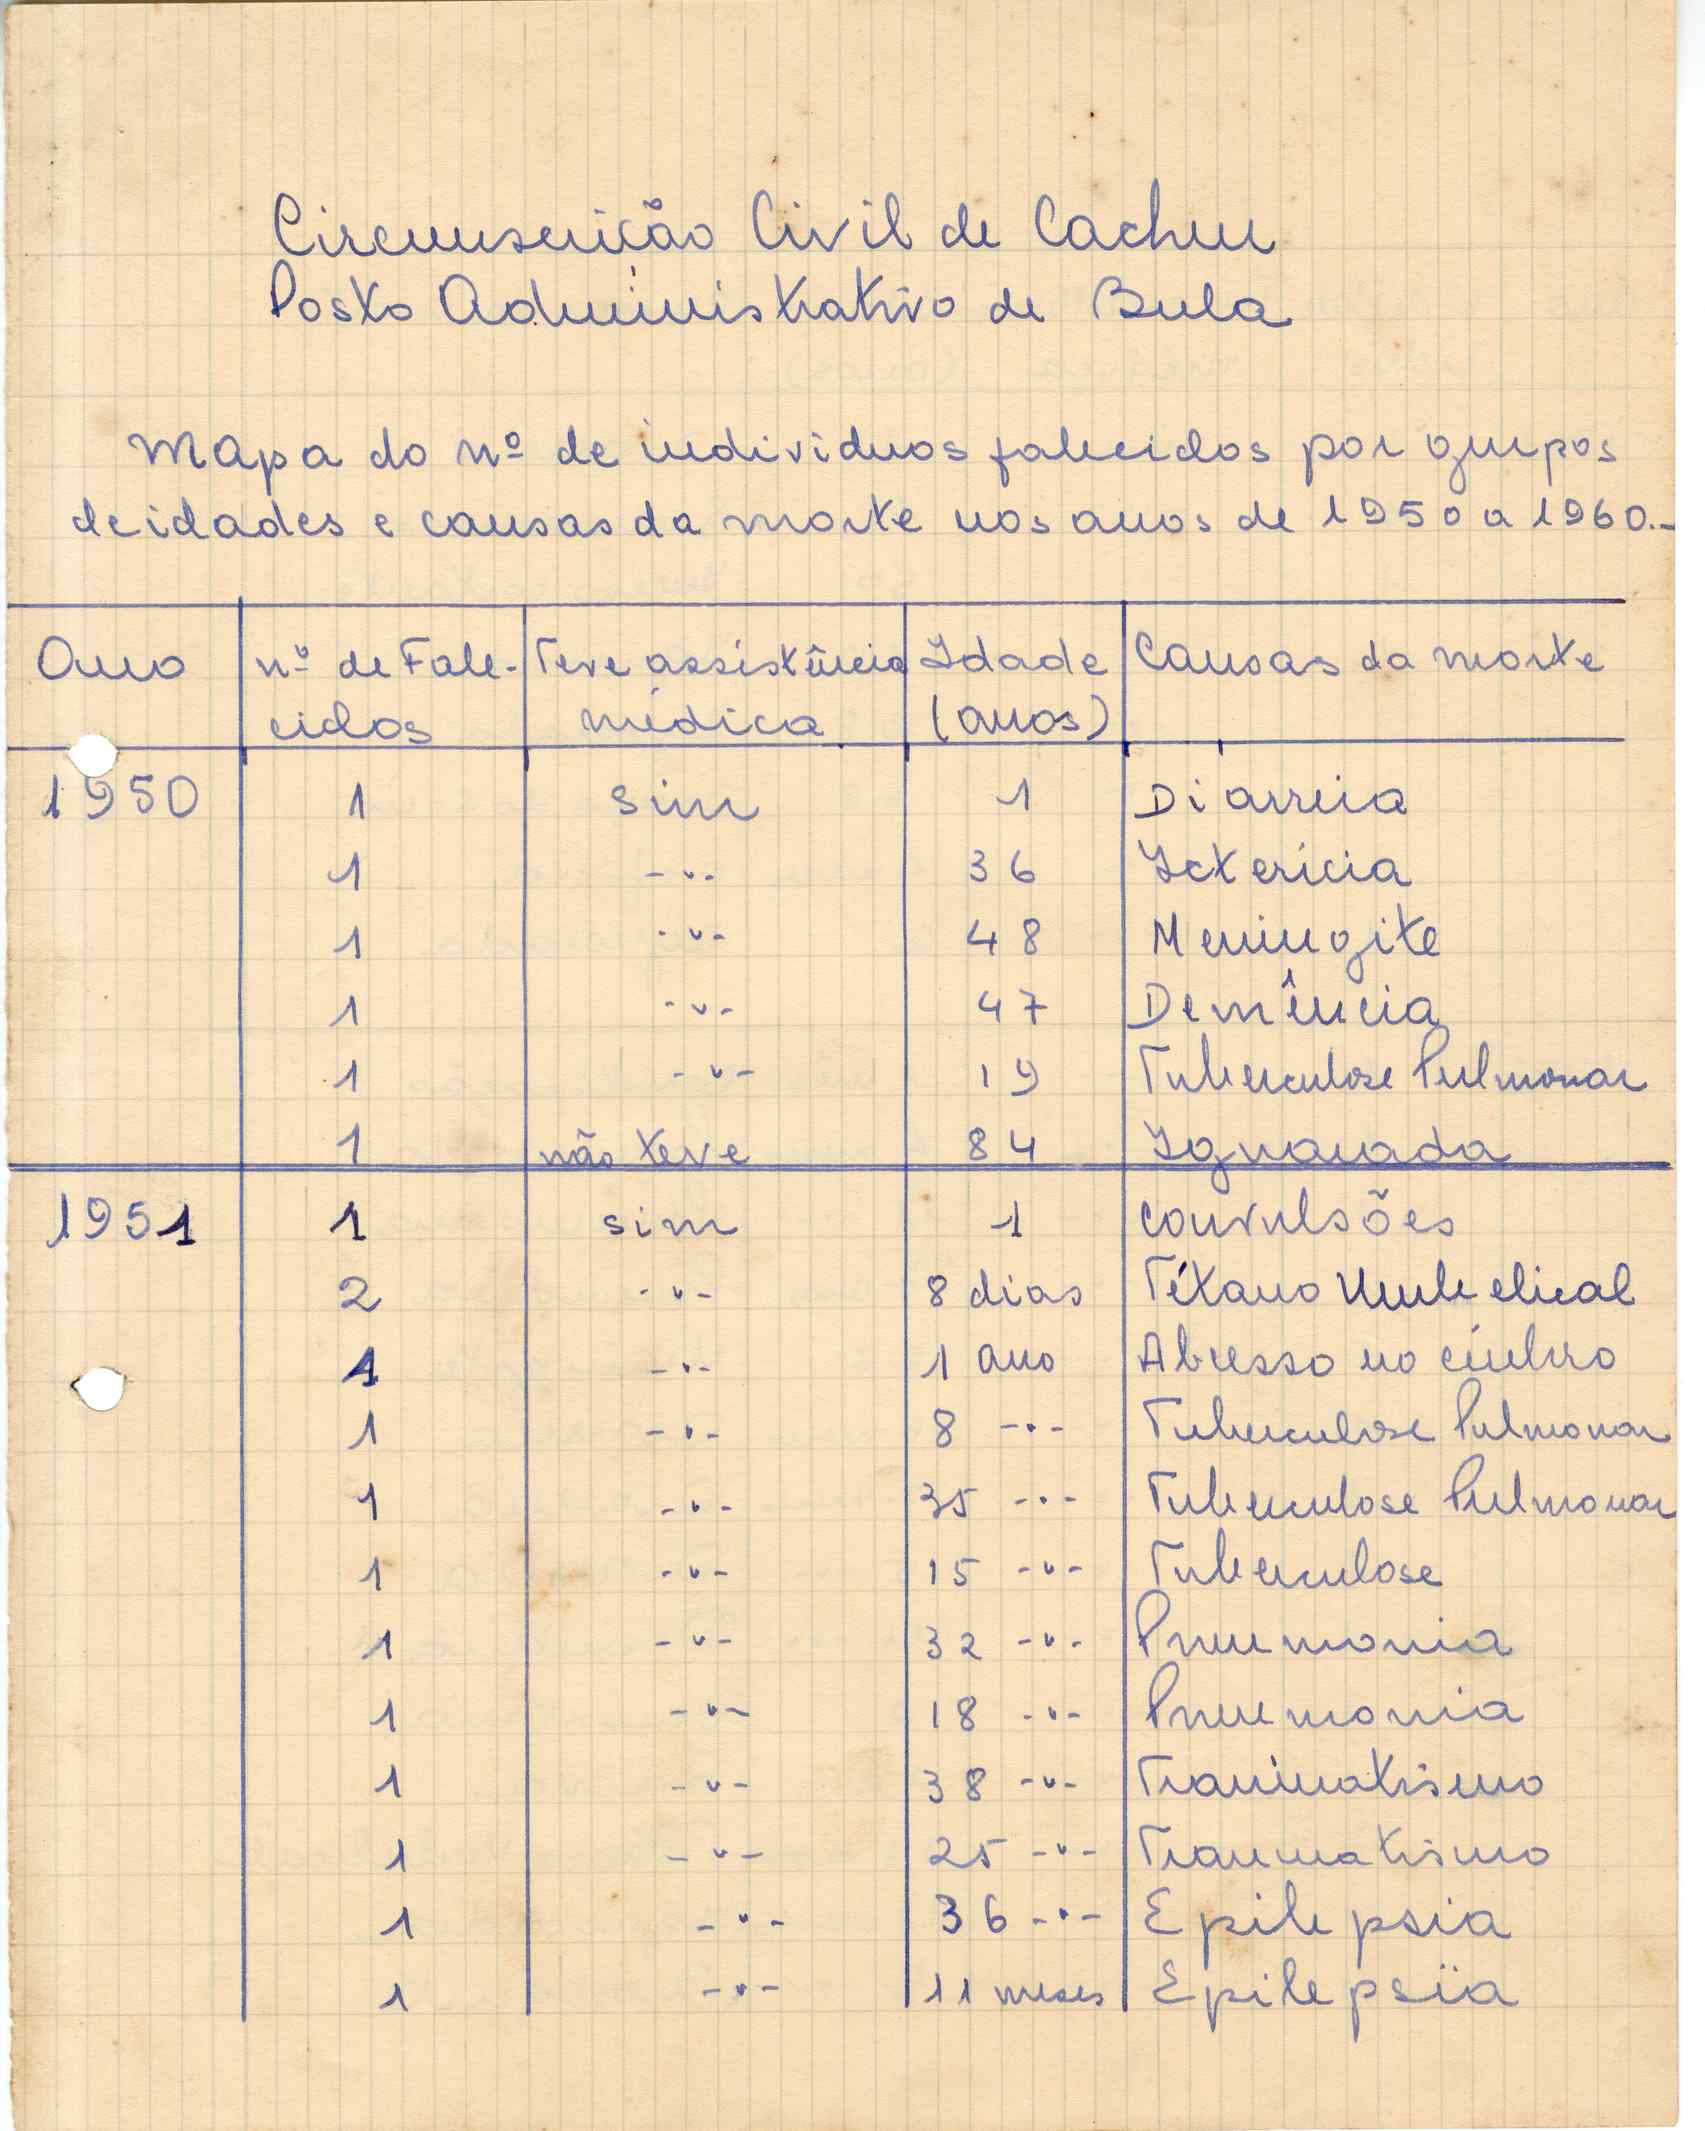 Circunscrição Civil de Cacheu
Posto Administrativo de Bula
Mapa do nº de individuos falecidos por grupos
de idades e causas da morte nos anos de 1950 a 1960.-
Ano nº de Fale- Teve assistência Idade Causas da morte
cidos médica (anos)
1950 1 sim 1 Diarreia
1 -"- 36 Icterícia
1 -"- 48 Meningite
1 -"- 47 Demência
1 -"- 19 Tuberculose Pulmonar
1 não teve 84 Ignorada
1951 1 sim 1 Convulsões
2 -"- 8 dias Tétano Umbelical
1 -"- 1 ano Abcesso no
1 -"- 8 -"- Tuberculose Pulmonar
1 -"- 35 -"- Tuberculose Pulmonar
1 -"- 15 -"- Tuberculose
1 -"- 32 -"- Pneumonia
1 -"- 18 -"- Pneumonia
1 -"- 38 -"- Traumatismo
1 -"- 25 -"- Traumatismo
1 -"- 36 -"- Epilepsia
1 -"- 11 meses Epilepsia